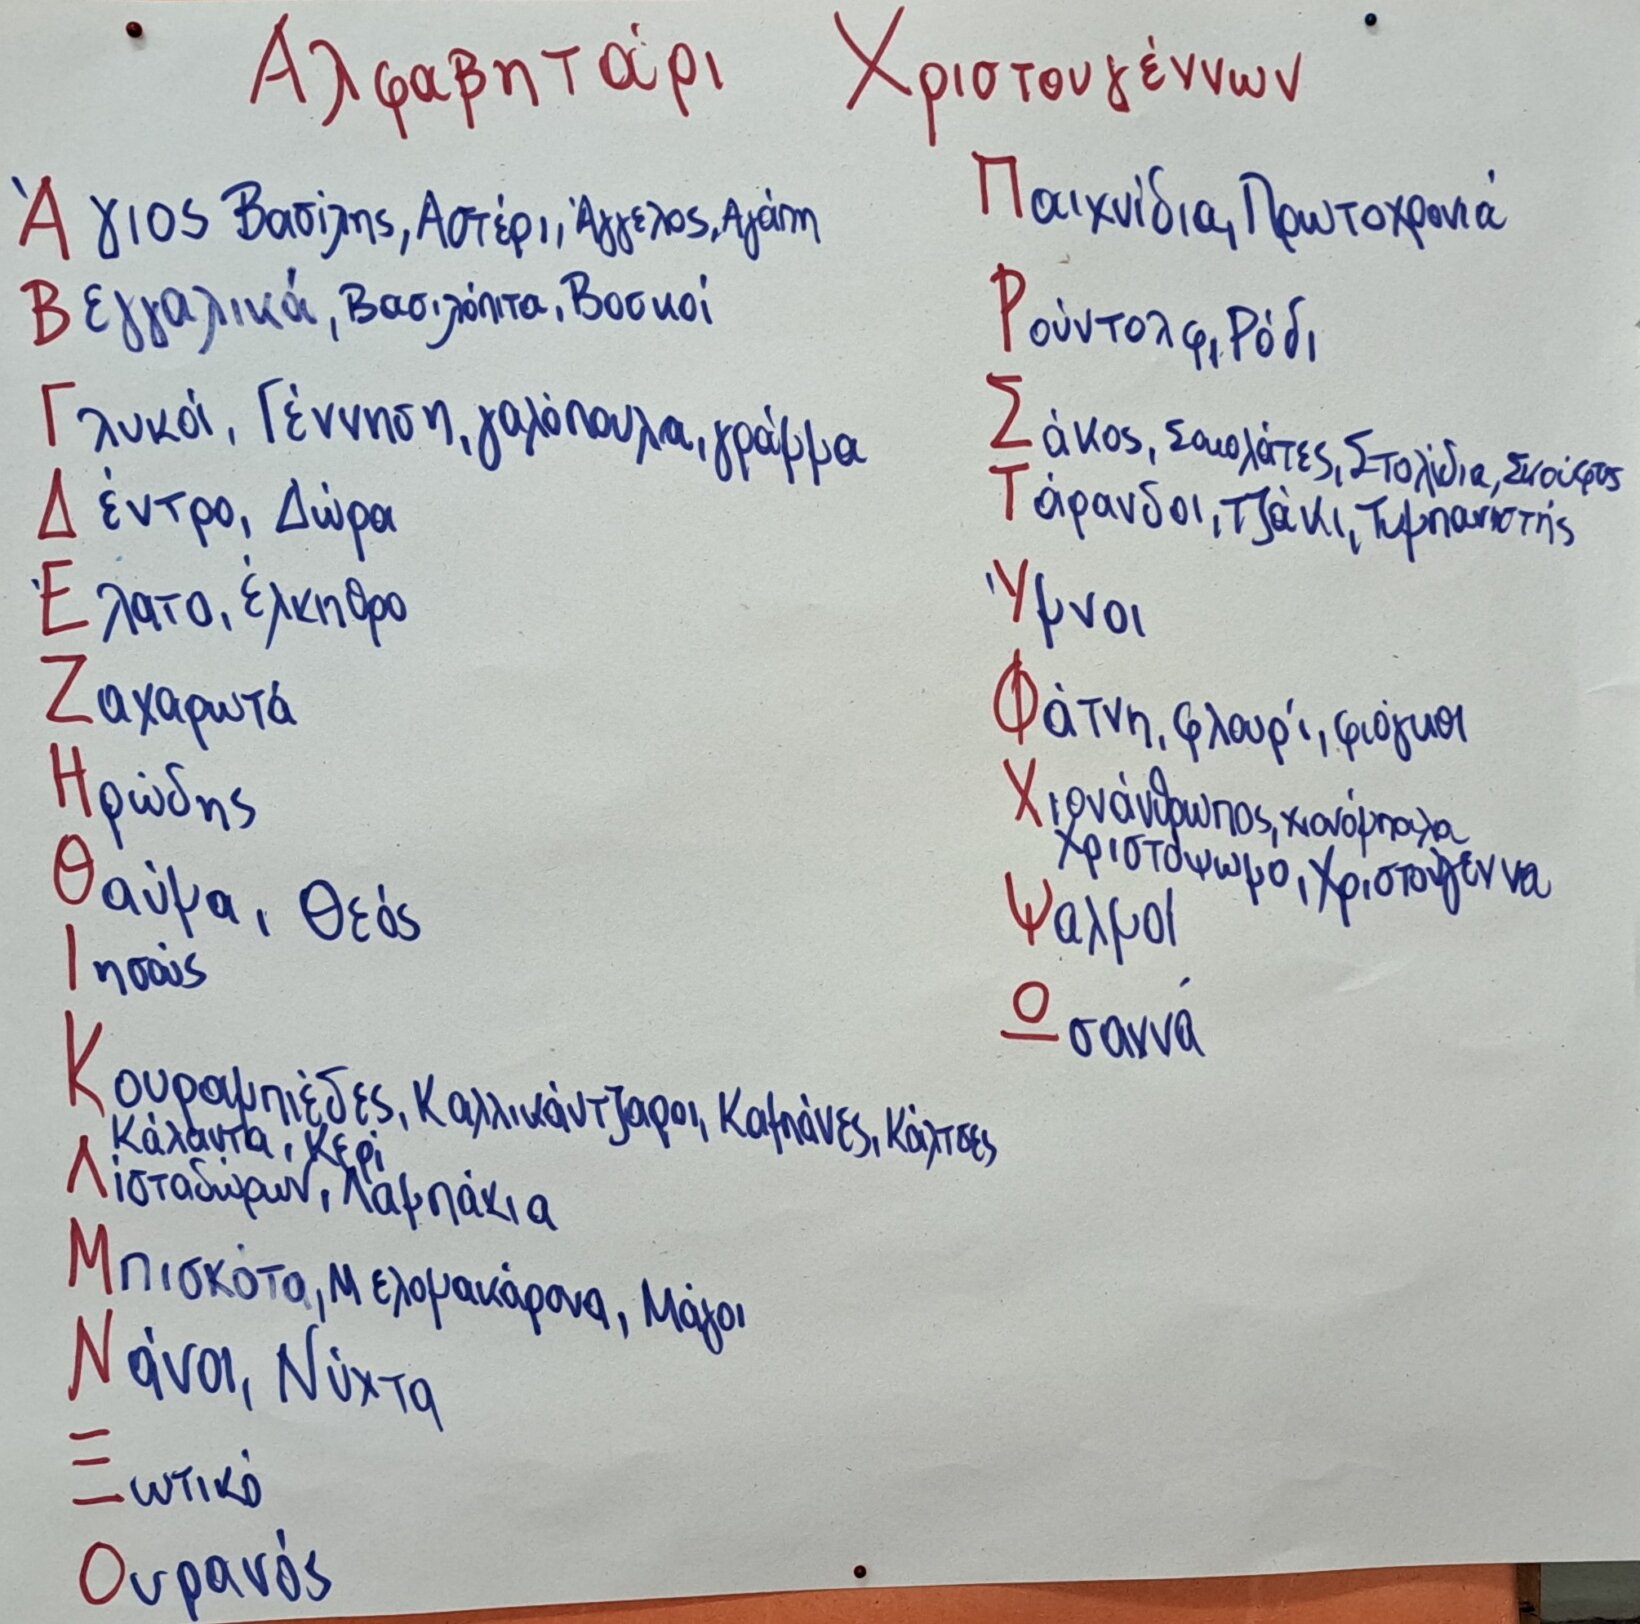 Αλφαβητάρι Χριστουγέννων
Άγιος Βασίλης, Αστέρι, Άγγελος, Αγάπη
Βεγγαλικά, Βασιλόπιτα, Βοσκοί
Γλυκά, Γέννηση, γαλόπουλα, γράμμα
Δέντρο, Δώρα
Έλατο, έλκηθρο
Ζαχαρωτά
Ηρώδης
Θαύμα, Θεός
Ιησούς
Κουραμπιέδες, Καλλικάντζαροι, Καμπάνες, Κάλτσες
Κάλαντα, Κερί
Λίστα δώρων, Λαμπάκια
Μπισκότα, Μελομακάρονα, Μάγοι
Νάνοι, Νύχτα
Ξωτικό
Ουρανός
Παιχνίδια, Πρωτοχρονιά
Ρούντολφ, Ρόδι
Σάκος, Σοκολάτες, Στολίδια, Σκούφος
Τάρανδοι, Τζάκι, Τυμπανιστής
Ύμνοι
Φάτνη, φλουρί, φιόγκοι
Χιονάνθρωπος, χιονόμπαλα
Χριστόψωμο, Χριστούγεννα
Ψαλμοί
Ωσαννά